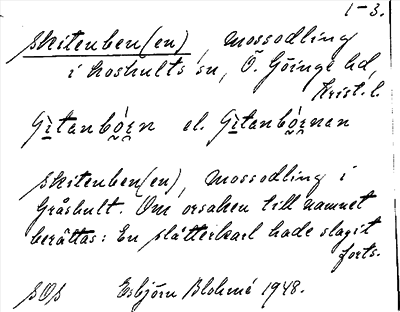 1-3.
Skitenben(en), mossodling
i Loshults sn, Ö. Göinge hd,
Krist. l.
Gi̱tanbo̰ḭn el. Gi̱tanbó̰ḭnan
Skitenben(en), mossodling i
Gråshult. Om orsaken till namnet
berättas: En slåtterkarl hade slagit
forts.
SOS Esbjörn Blohmé 1948.